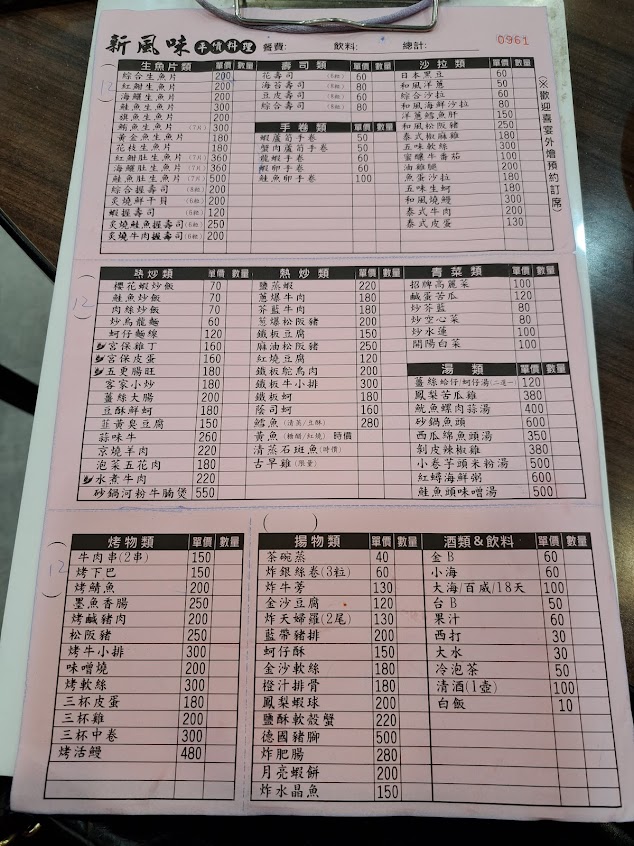 新風味 平價料理 餐費: 飲料: 總計: 0961
※歡迎喜宴外燴預約訂席
12
生魚片類 單價 數量
綜合生魚片 200
紅魽生魚片 200
海鱺生魚片 200
鮭魚生魚片 300
旗魚生魚片 200
鮪魚生魚片 (7片) 300
黃金魚生魚片 180
花枝生魚片 180
紅魽肚生魚片 (7片) 360
海鱺肚生魚片 (7片) 360
鮭魚肚生魚片 (7片) 500
綜合握壽司 (8粒) 200
炙燒鮮干貝 (6粒) 200
蝦握壽司 (6粒) 120
炙燒鮭魚握壽司 (6粒) 250
炙燒牛肉握壽司 (6粒) 200
壽司類 單價 數量
花壽司 60
海苔壽司 80
豆皮壽司 60
綜合壽司 80
手卷類 單價 數量
蝦蘆筍手卷 50
蟹肉蘆筍手卷 50
龍蝦手卷 60
蝦卵手卷 60
鮭魚卵手卷 100
沙拉類 單價 數量
日本黑豆 60
和風洋蔥 50
綜合沙拉 60
和風海鮮沙拉 80
洋蔥鱈魚肝 150
和風松阪豬 250
泰式椒麻雞 180
五味軟絲 300
蜜釀牛番茄 100
油雞腿 200
魚蛋沙拉 180
五味生蚵 180
和風燒鰻 300
泰式牛肉 200
泰式皮蛋 130
12
熱炒類 單價 數量
櫻花蝦炒飯 70
鮭魚炒飯 70
肉絲炒飯 70
炒烏龍麵 60
蚵仔麵線 120
宮保雞丁 160
宮保皮蛋 160
五更腸旺 180
客家小炒 180
薑絲大腸 200
豆酥鮮蚵 200
韮黃臭豆腐 150
蒜味牛 260
京燒羊肉 220
泡菜五花肉 180
水煮牛肉 220
砂鍋河粉牛腩煲 550
熱炒類 單價 數量
鹽蒸蝦 220
蔥爆牛肉 180
芥藍牛肉 180
蔥爆松阪豬 200
鐵板豆腐 150
麻油松阪豬 250
紅燒豆腐 120
鐵板鴕鳥肉 200
鐵板牛小排 300
鐵板蚵 180
蔭司蚵 160
鱈魚 (清蒸/豆酥) 280
黃魚 (糖醋/紅燒) 時價
清蒸石斑魚 (時價)
古早雞 (限量)
青菜類 單價 數量
招牌高麗菜 100
鹹蛋苦瓜 120
炒芥藍 80
炒空心菜 80
炒水蓮 100
開陽白菜 100
湯類 單價 數量
薑絲蛤仔/蚵仔湯(二選一) 120
鳳梨苦瓜雞 380
魷魚螺肉蒜湯 400
砂鍋魚頭 600
西瓜綿魚頭湯 350
剝皮辣椒雞 380
小卷芋頭米粉湯 500
紅蟳海鮮粥 600
鮭魚頭味噌湯 500
12
烤物類 單價 數量
牛肉串(2串) 150
烤下巴 150
烤鯖魚 200
墨魚香腸 250
烤鹹豬肉 200
松阪豬 250
烤牛小排 300
味噌燒 200
烤軟絲 300
三杯皮蛋 180
三杯雞 200
三杯中卷 300
烤活鰻 480
揚物類 單價 數量
茶碗蒸 40
炸銀絲卷(3粒) 60
炸牛蒡 130
金沙豆腐 120
炸天婦羅(2尾) 130
藍帶豬排 200
蚵仔酥 150
金沙軟絲 180
橙汁排骨 180
鳳梨蝦球 200
鹽酥軟殼蟹 220
德國豬腳 500
炸肥腸 280
月亮蝦餅 200
炸水晶魚 150
酒類&飲料 單價 數量
金B 60
小海 60
大海/百威/18天 100
台B 50
果汁 60
西打 30
大水 30
冷泡茶 50
清酒(1壺) 100
白飯 10